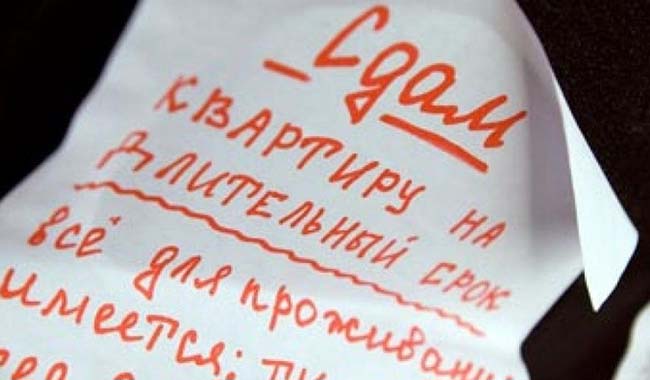 Сдам
КВАРТИРУ НА
ДЛИТЕЛЬНЫЙ СРОК
всё для прожива
имеется;